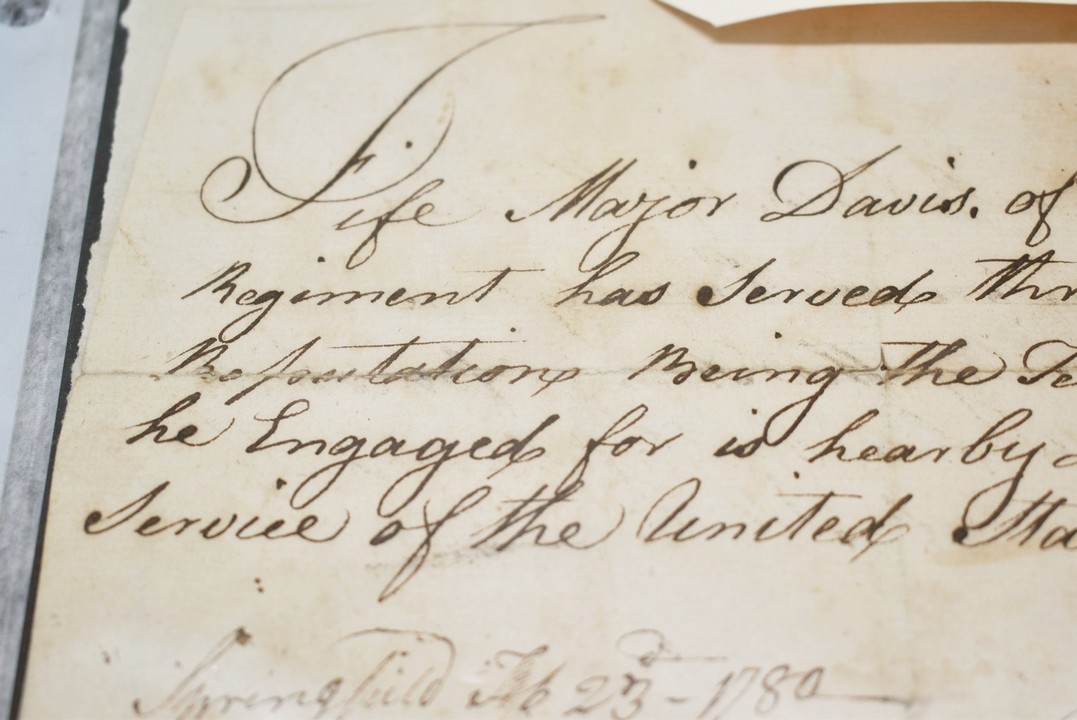 Fife Major Davis. of
Regiment has Served thr
Reputation Being the Te
he Engaged for is hearby
Service of the United Sta
Springfield Feb 23d - 1780